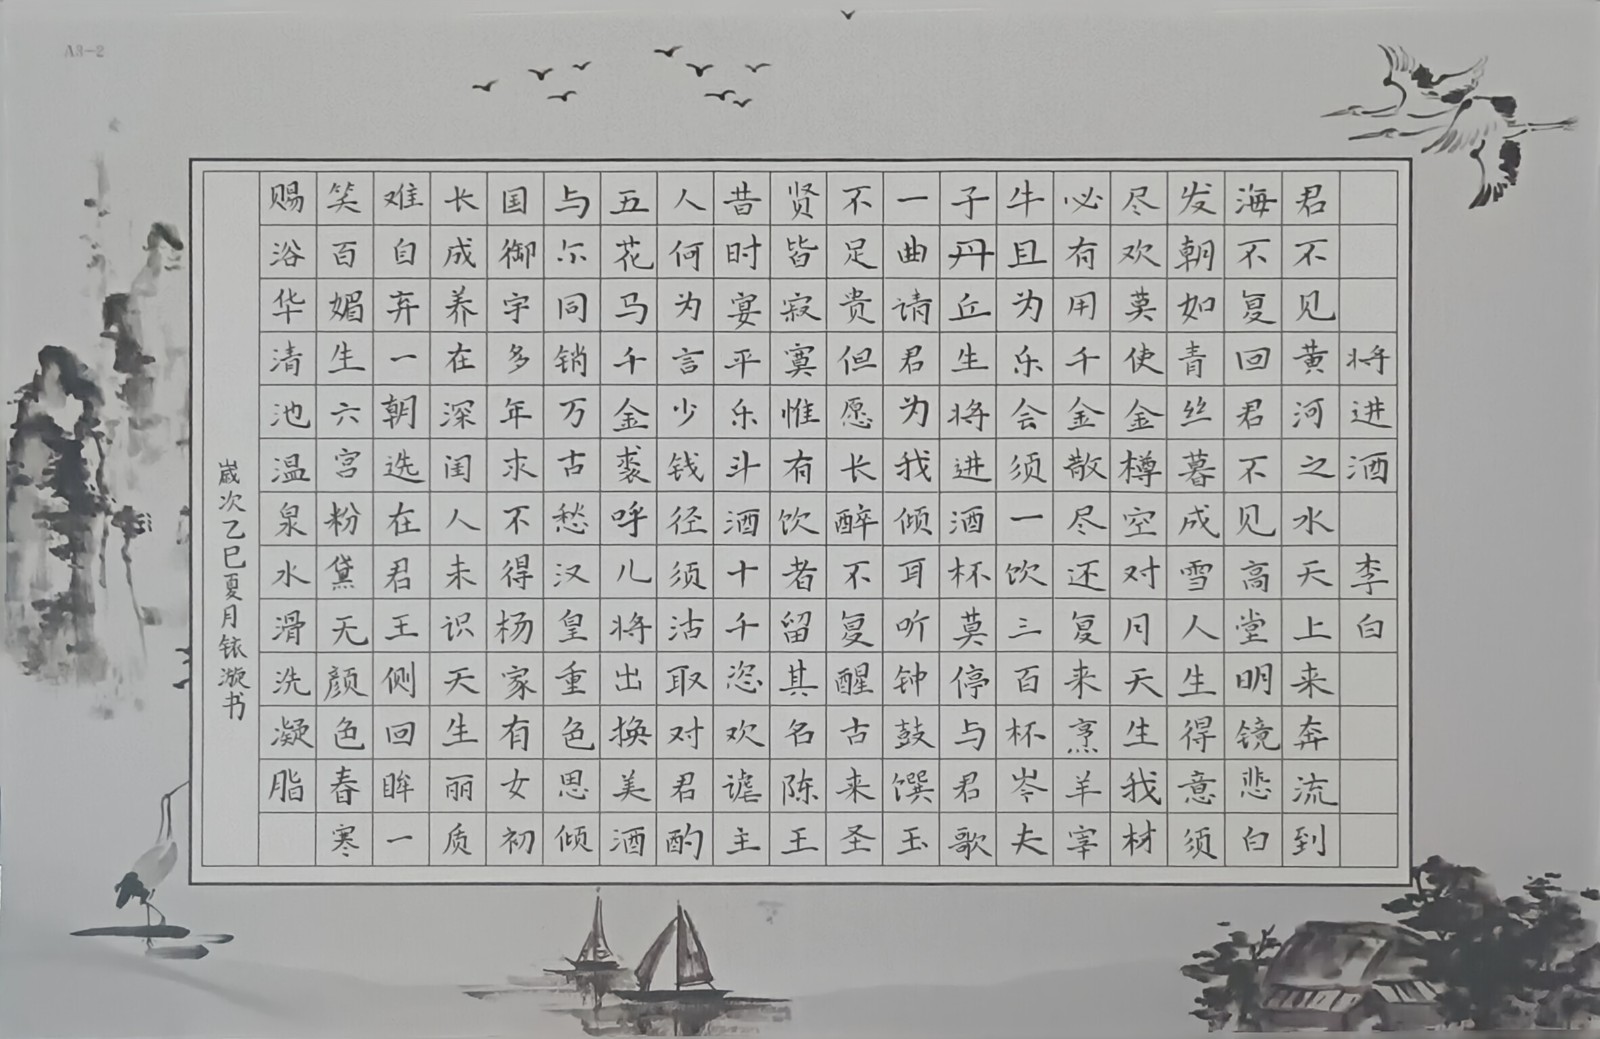 A3-2
将进酒 李白
君不见黄河之水天上来奔流到
海不复回君不见高堂明镜悲白
发朝如青丝暮成雪人生得意须
尽欢莫使金樽空对月天生我材
必有用千金散尽还复来烹羊宰
牛且为乐会须一饮三百杯岑夫
子丹丘生将进酒杯莫停与君歌
一曲请君为我倾耳听钟鼓馔玉
不足贵但愿长醉不复醒古来圣
贤皆寂寞惟有饮者留其名陈王
昔时宴平乐斗酒十千恣欢谑主
人何为言少钱径须沽取对君酌
五花马千金裘呼儿将出换美酒
与尔同销万古愁汉皇重色思倾
国御宇多年求不得杨家有女初
长成养在深闺人未识天生丽质
难自弃一朝选在君王侧回眸一
笑百媚生六宫粉黛无颜色春寒
赐浴华清池温泉水滑洗凝脂
嵗次乙巳夏月铱漩书